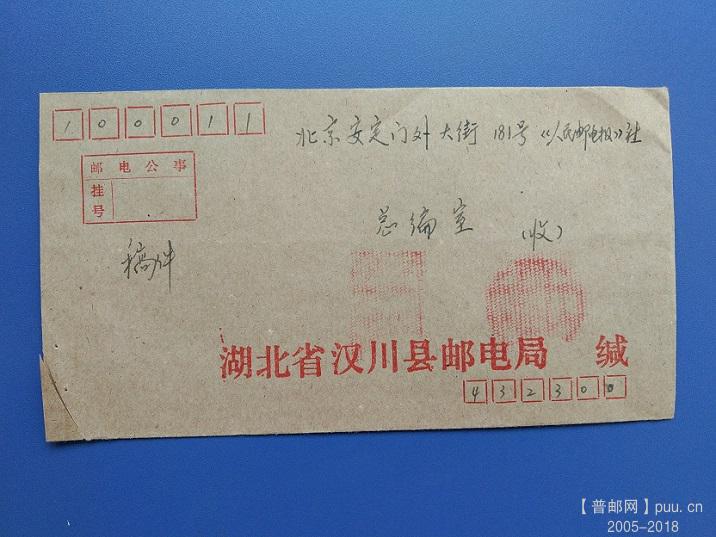 100011
北京安定门外大街181号《人民邮电报》社
邮电公事
挂号
总编室 (收)
稿件
湖北省汉川县邮电局 缄
432300
【普邮网】puu.cn
2005-2018